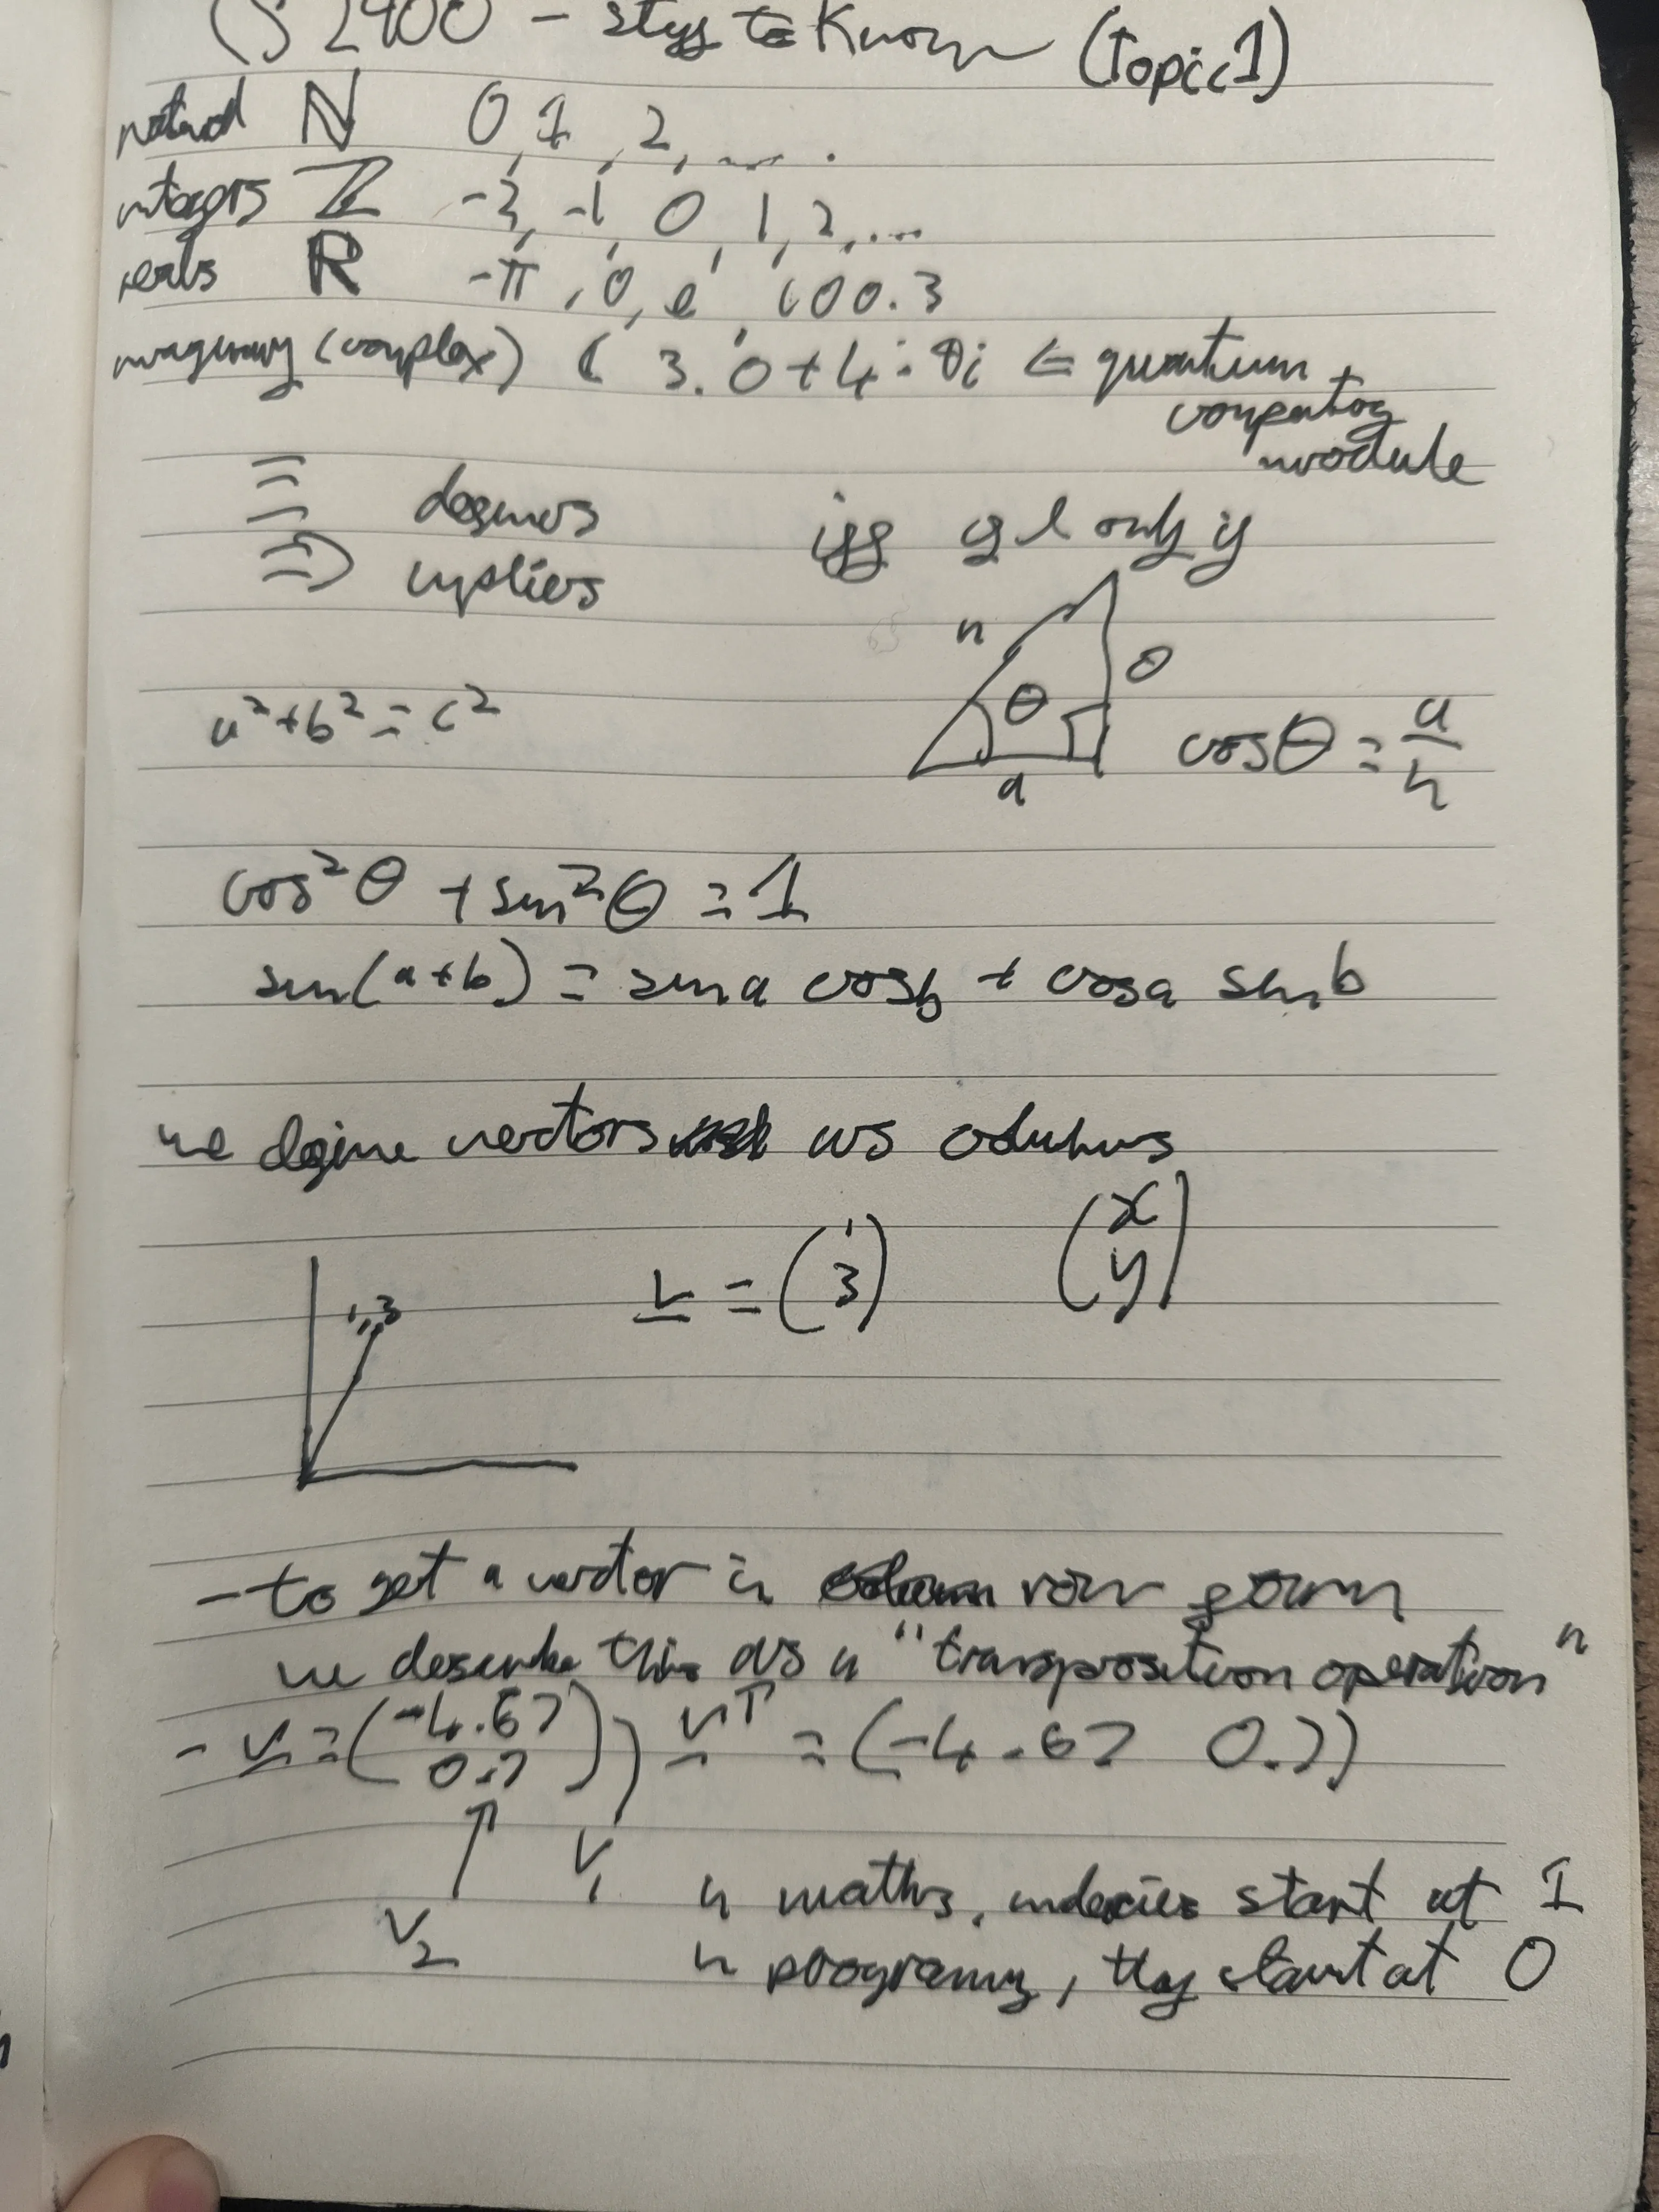 CS 2400 - stuff to know (Topic 1)
natural ℕ 0, 1, 2, ....
integers ℤ -2, -1, 0, 1, 2, ...
reals ℝ -π, 0, e, 100.3
imaginary (complex) ℂ 3.0+4.0i ⇐ quantum
computing
module
≡ defines iff if & only if
⇒ implies
h
o
θ
a² + b² = c² cosθ = a/h
a
cos²θ + sin²θ = 1
sin(a+b) = sin a cos b + cos a sin b
we define vectors as columns
v = (1 3) (x y)
1,3
- to get a vector in row form
we describe this as a "transposition operation"
- v = (-4.67 0.7) vᵀ = (-4.67 0.7)
V₁
V₂
in maths, indecies start at 1
in programg, they start at 0